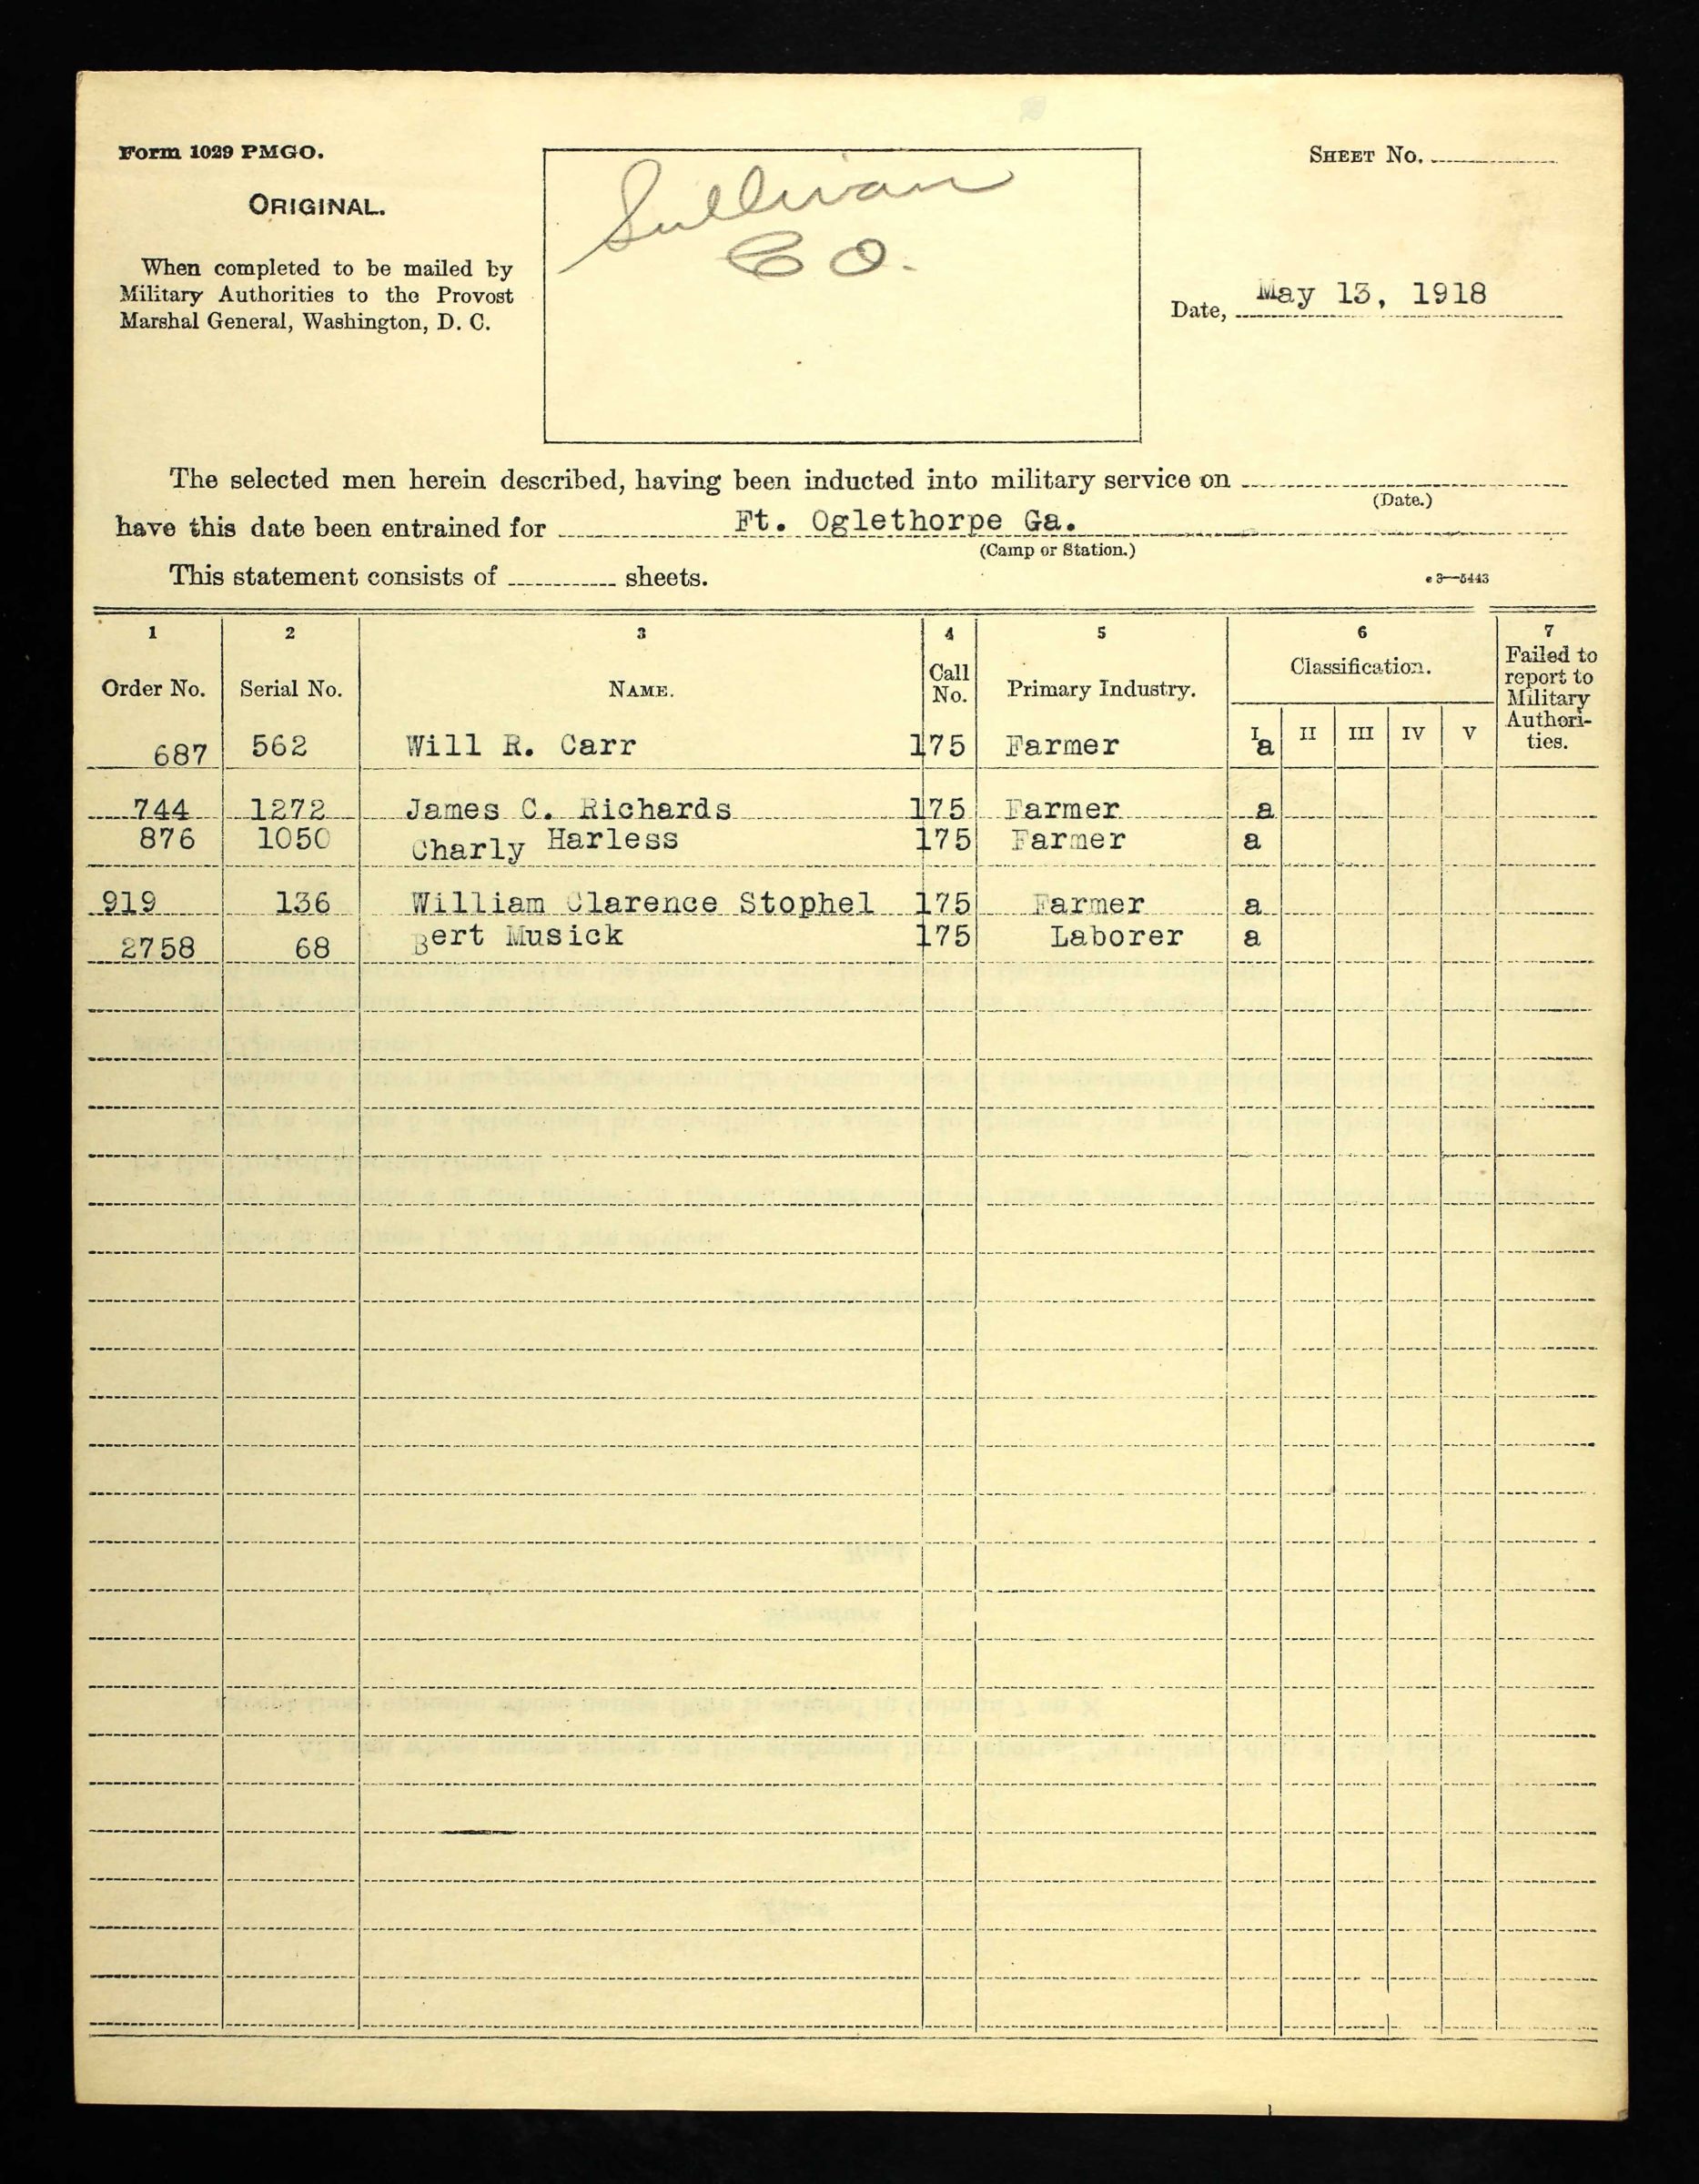 Form 1029 PMGO.
ORIGINAL.
When completed to be mailed by
Military Authorities to the Provost
Marshal General, Washington, D. C.
Sullivan
Co.
SHEET NO.
Date, May 13, 1918
The selected men herein described, having been inducted into military service on
(Date.)
have this date been entrained for Ft. Oglethorpe Ga.
(Camp or Station.)
This statement consists of sheets.
e 3—5443
1 2 3 4 5 6 7
Order No. Serial No. NAME. Call No. Primary Industry. Classification. Failed to report to Military Authori-ties.
I II III IV V
687 562 Will R. Carr 175 Farmer a
744 1272 James C. Richards 175 Farmer a
876 1050 Charly Harless 175 Farmer a
919 136 William Clarence Stophel 175 Farmer a
2758 68 Bert Musick 175 Laborer a